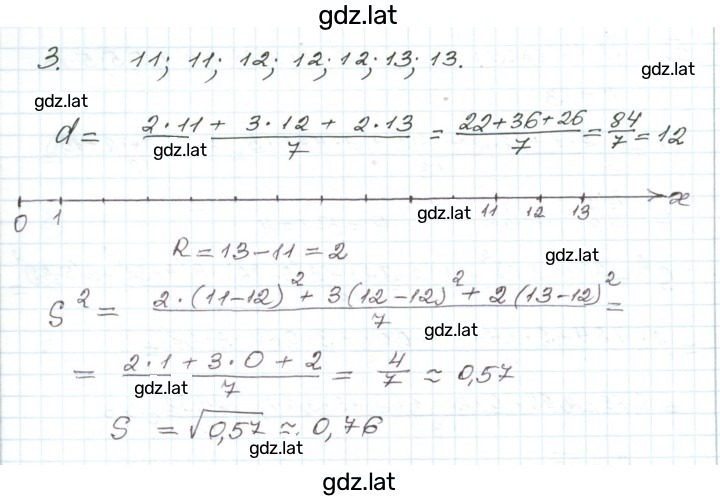 gdz.lat
3. 11; 11; 12; 12; 12; 13; 13.
gdz.lat
gdz.lat
d = (2·11 + 3·12 + 2·13)/7 = (22+36+26)/7 = 84/7 = 12
gdz.lat
0 1 11 12 13 x
gdz.lat
R = 13 - 11 = 2
gdz.lat
S² = (2·(11-12)² + 3(12-12)² + 2(13-12)²)/7 =
gdz.lat
= (2·1 + 3·0 + 2)/7 = 4/7 ≈ 0,57
gdz.lat
S = √0,57 ≈ 0,76
gdz.lat
gdz.lat